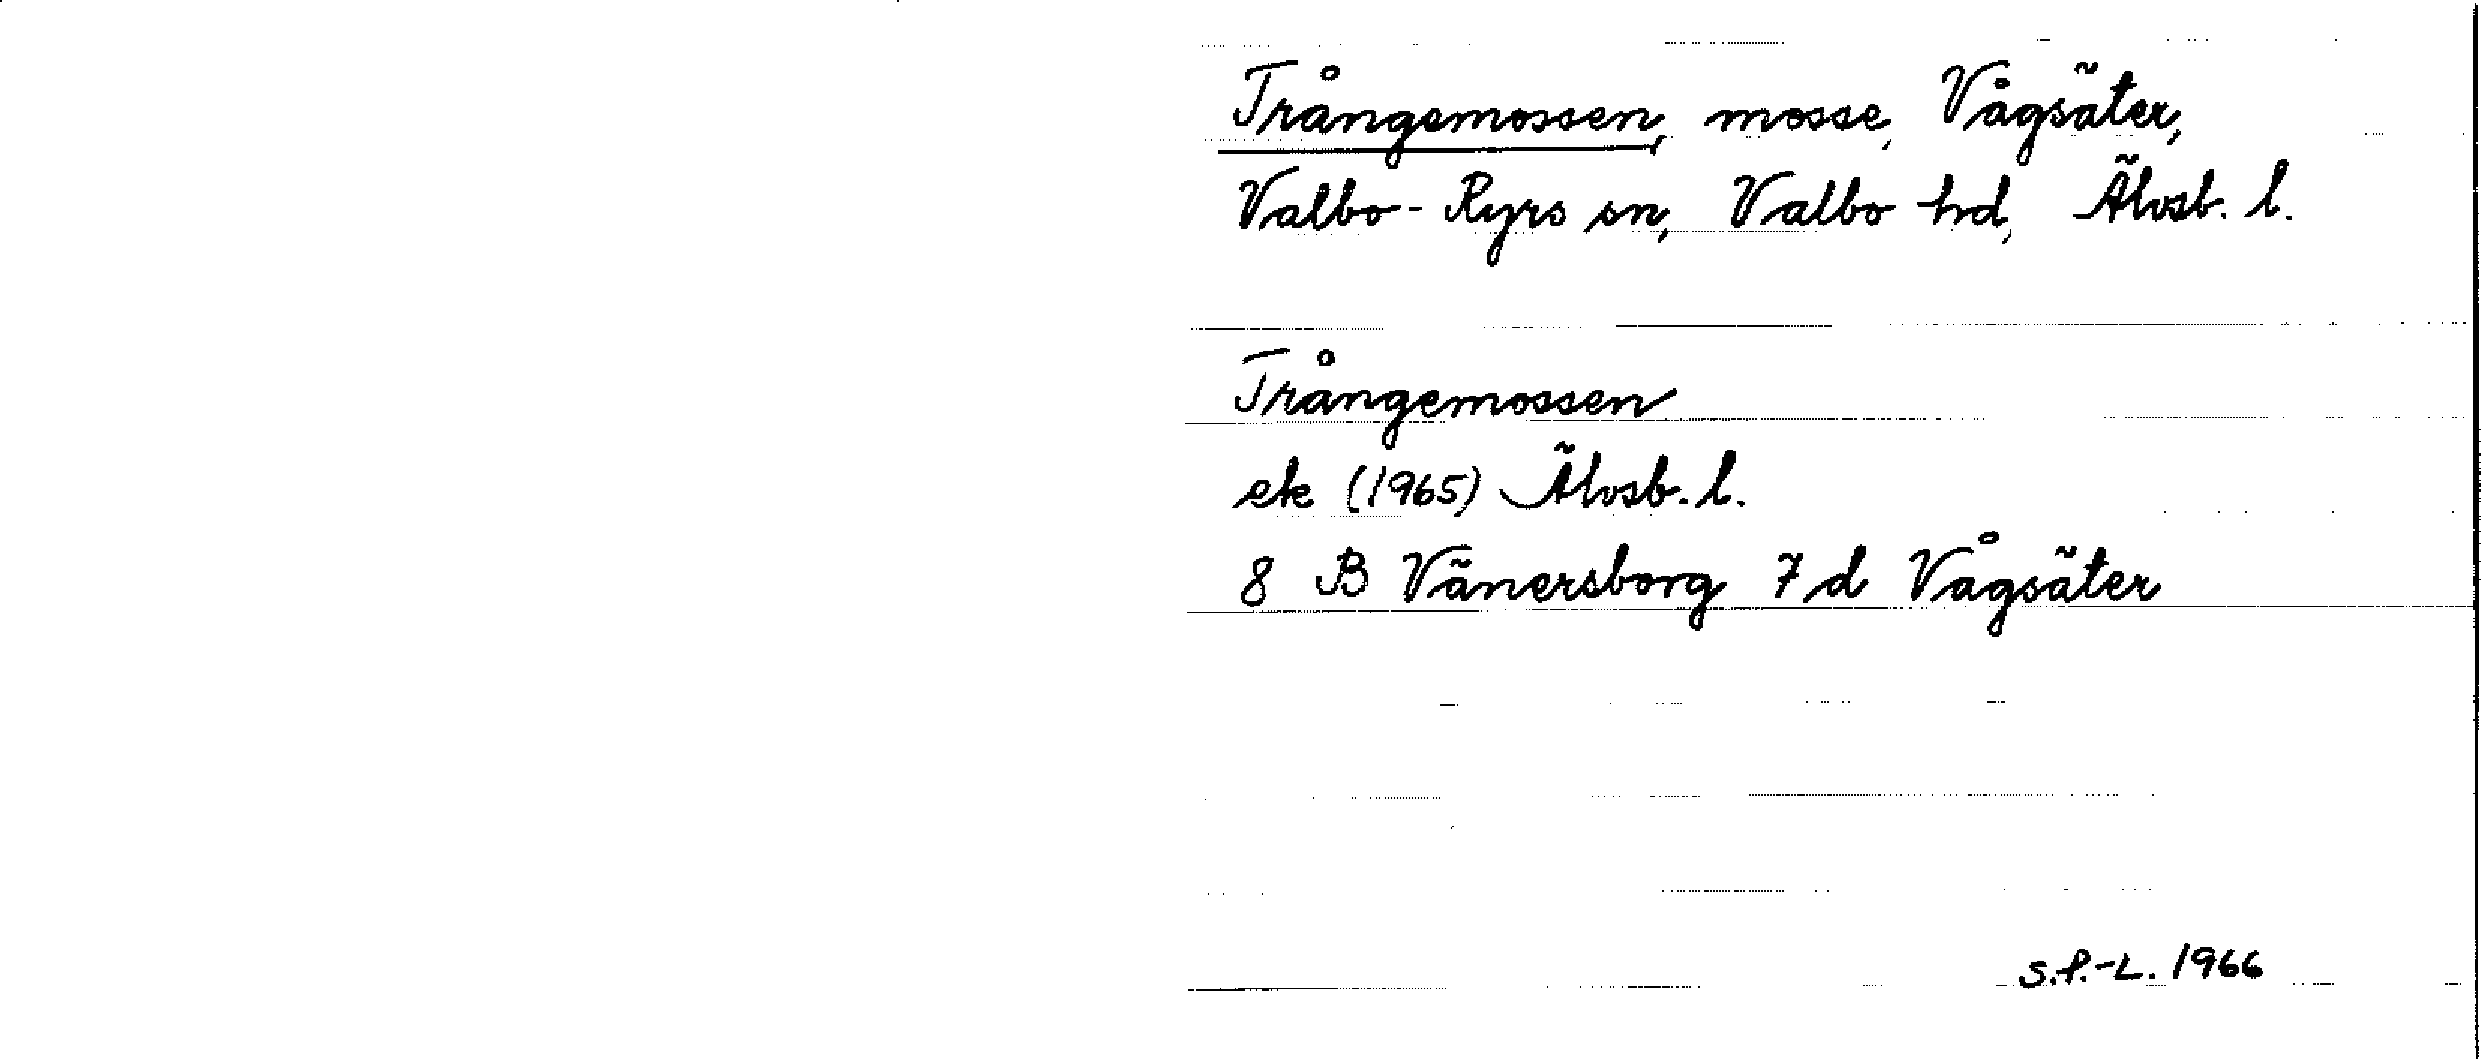 Trångemossen, mosse, Vågsäter,
Valbo-Ryrs sn, Valbo hd, Älvsb. l.
Trångemossen
ek (1965) Älvsb. l.
8 B Vänersborg 7 d Vågsäter
S.P.-L. 1966